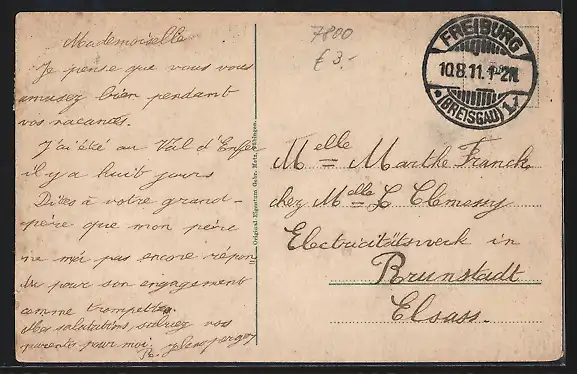 Mademoiselle
Je pense que vous vous
amusez bien pendant
vos vacances.
J'ai été au Val d'Enfer
il y a huit jours
Dites à votre grand-
père que mon père
ne m'a pas encore répon
du pour son engagement
comme trompette.
Mes salutations, saluez vos
parents pour moi.
7800
£ 3.-
FREIBURG
10.8.11.1-2N.
* (BREISGAU) 1
Original-Eigentum Gebr. Metz, Tübingen.
Melle Marthe Franck
chez Melle L Clemessy
Electricitätswerk in
Brunstadt
Elsass.